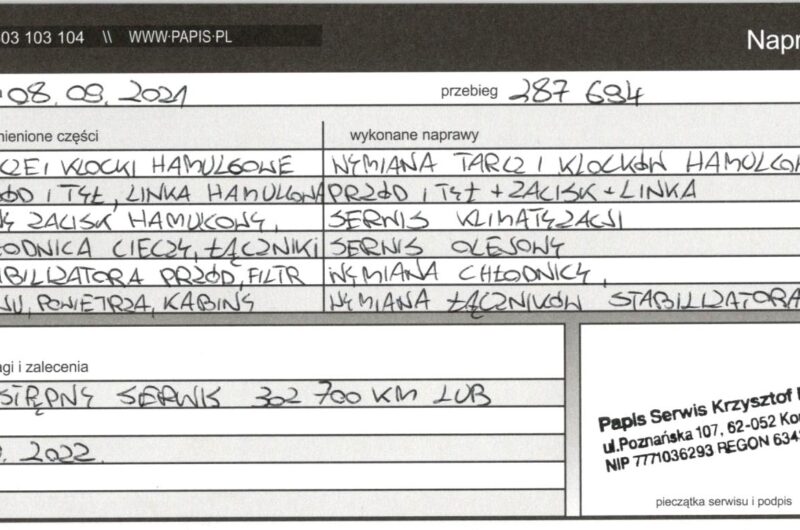 03 103 104 \\ WWW.PAPIS.PL
Napr
08.09.2021
przebieg 287 694
nienione części
wykonane naprawy
CZE I KLOCKI HAMULCOWE
WYMIANA TARCZ I KLOCKÓW HAMULCO
ÓD I TYŁ, LINKA HAMULCOWA
PRZÓD I TYŁ + ZACISK + LINKA
NY ZACISK HAMULCOWY,
SERWIS KLIMATYZACJI
ŁODNICA CIECZY, ŁĄCZNIKI
SERWIS OLEJOWY
ABILIZATORA PRZÓD, FILTR
WYMIANA CHŁODNICY,
JU, POWIETRZA, KABINY
WYMIANA ŁĄCZNIKÓW STABILIZATORA
agi i zalecenia
STĘPNY SERWIS 302 700 KM LUB
2022
Papis Serwis Krzysztof
ul.Poznańska 107, 62-052 Ko
NIP 7771036293 REGON 634
pieczątka serwisu i podpis